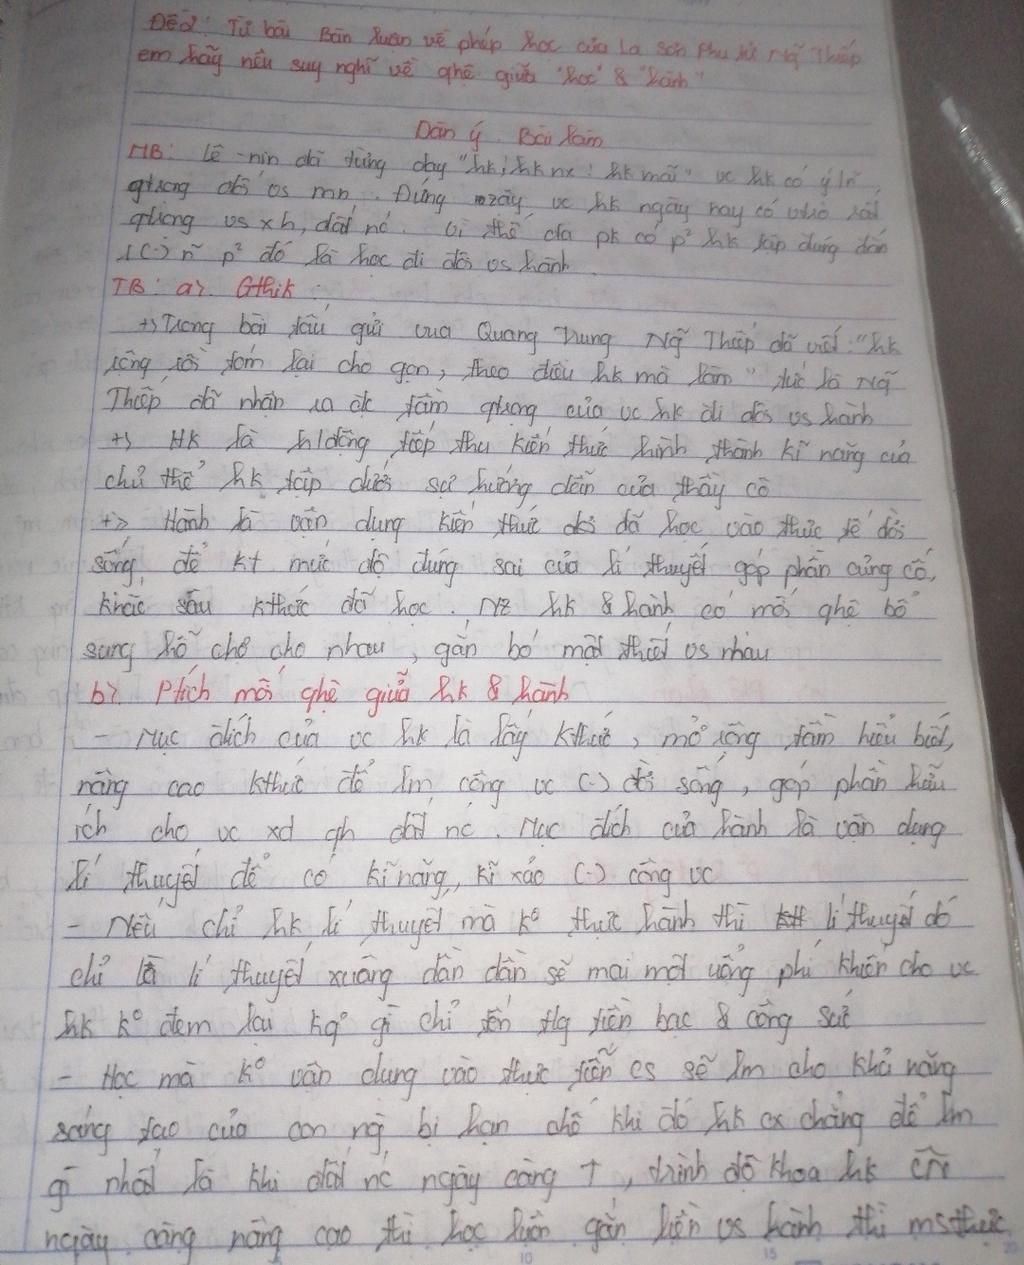 Đề 2: Từ bài Bàn luận về phép học của La Sơn Phu Tử Ng~ Thiếp
em hãy nêu suy nghĩ về qhệ giữa "học" & "hành"
Dàn ý Bài làm
MB: Lê-nin đã từng dạy "hk, hk nx, hk mãi" vc hk có ý
qtrọng đối vs mn. Đúng vậy vc hk ngày nay có vtrò rất
qtrọng vs xh, đất nc. Vì thế cta pk có p² hk tập đúng đắn
1 (-) n~ p² đó là học đi đôi vs hành.
TB: a>. Gthik:
+> Trong bài tấu gửi vua Quang Trung Ng~ Thiếp đã viết: "hk
rộng rồi tóm lại cho gọn, theo điều hk mà làm" tức là Ng~
Thiếp đã nhận ra đc tầm qtrọng của vc hk đi đôi vs hành
+> Hk là h/động tiếp thu kiến thức hình thành kĩ năng của
chủ thể hk tập dưới sự hướng dẫn của thầy cô
+> Hành là vận dụng kiến thức đã học vào thực tế đời
sống, để kt mức độ đúng sai của lí thuyết góp phần củng cố,
khắc sâu kthức đã học. hk & hành có mối qhệ bổ
sung hỗ chợ cho nhau, gắn bó mật thiết vs nhau
b>. Ptích mối qhệ giữa hk & hành
- Mục đích của vc hk là lấy kthức, mở rộng tầm hiểu biết,
nâng cao kthức để lm công vc (-) đời sống, góp phần hữu
ích cho vc xd qh đất nc. Mục đích của hành là vận dụng
lí thuyết để có kĩ năng, kĩ xảo (-) công vc
- Nếu chỉ hk lí thuyết mà k° thực hành thì lí thuyết đó
chỉ là lí thuyết xuông dần dần sẽ mai một uổng phí khiến cho vc
hk k° đem lại kq° gì chỉ tốn tg tiền bạc & công sức
- Học mà k° vận dụng vào thực tiễn cs sẽ lm cho khả năng
sáng tạo của con ng bị hạn chế khi đó hk cx chẳng để lm
gì nhất là khi đất nc ngày càng ↑, trình độ khoa hk CN
ngày càng nâng cao thì học luôn gắn liền vs hành thì ms thực